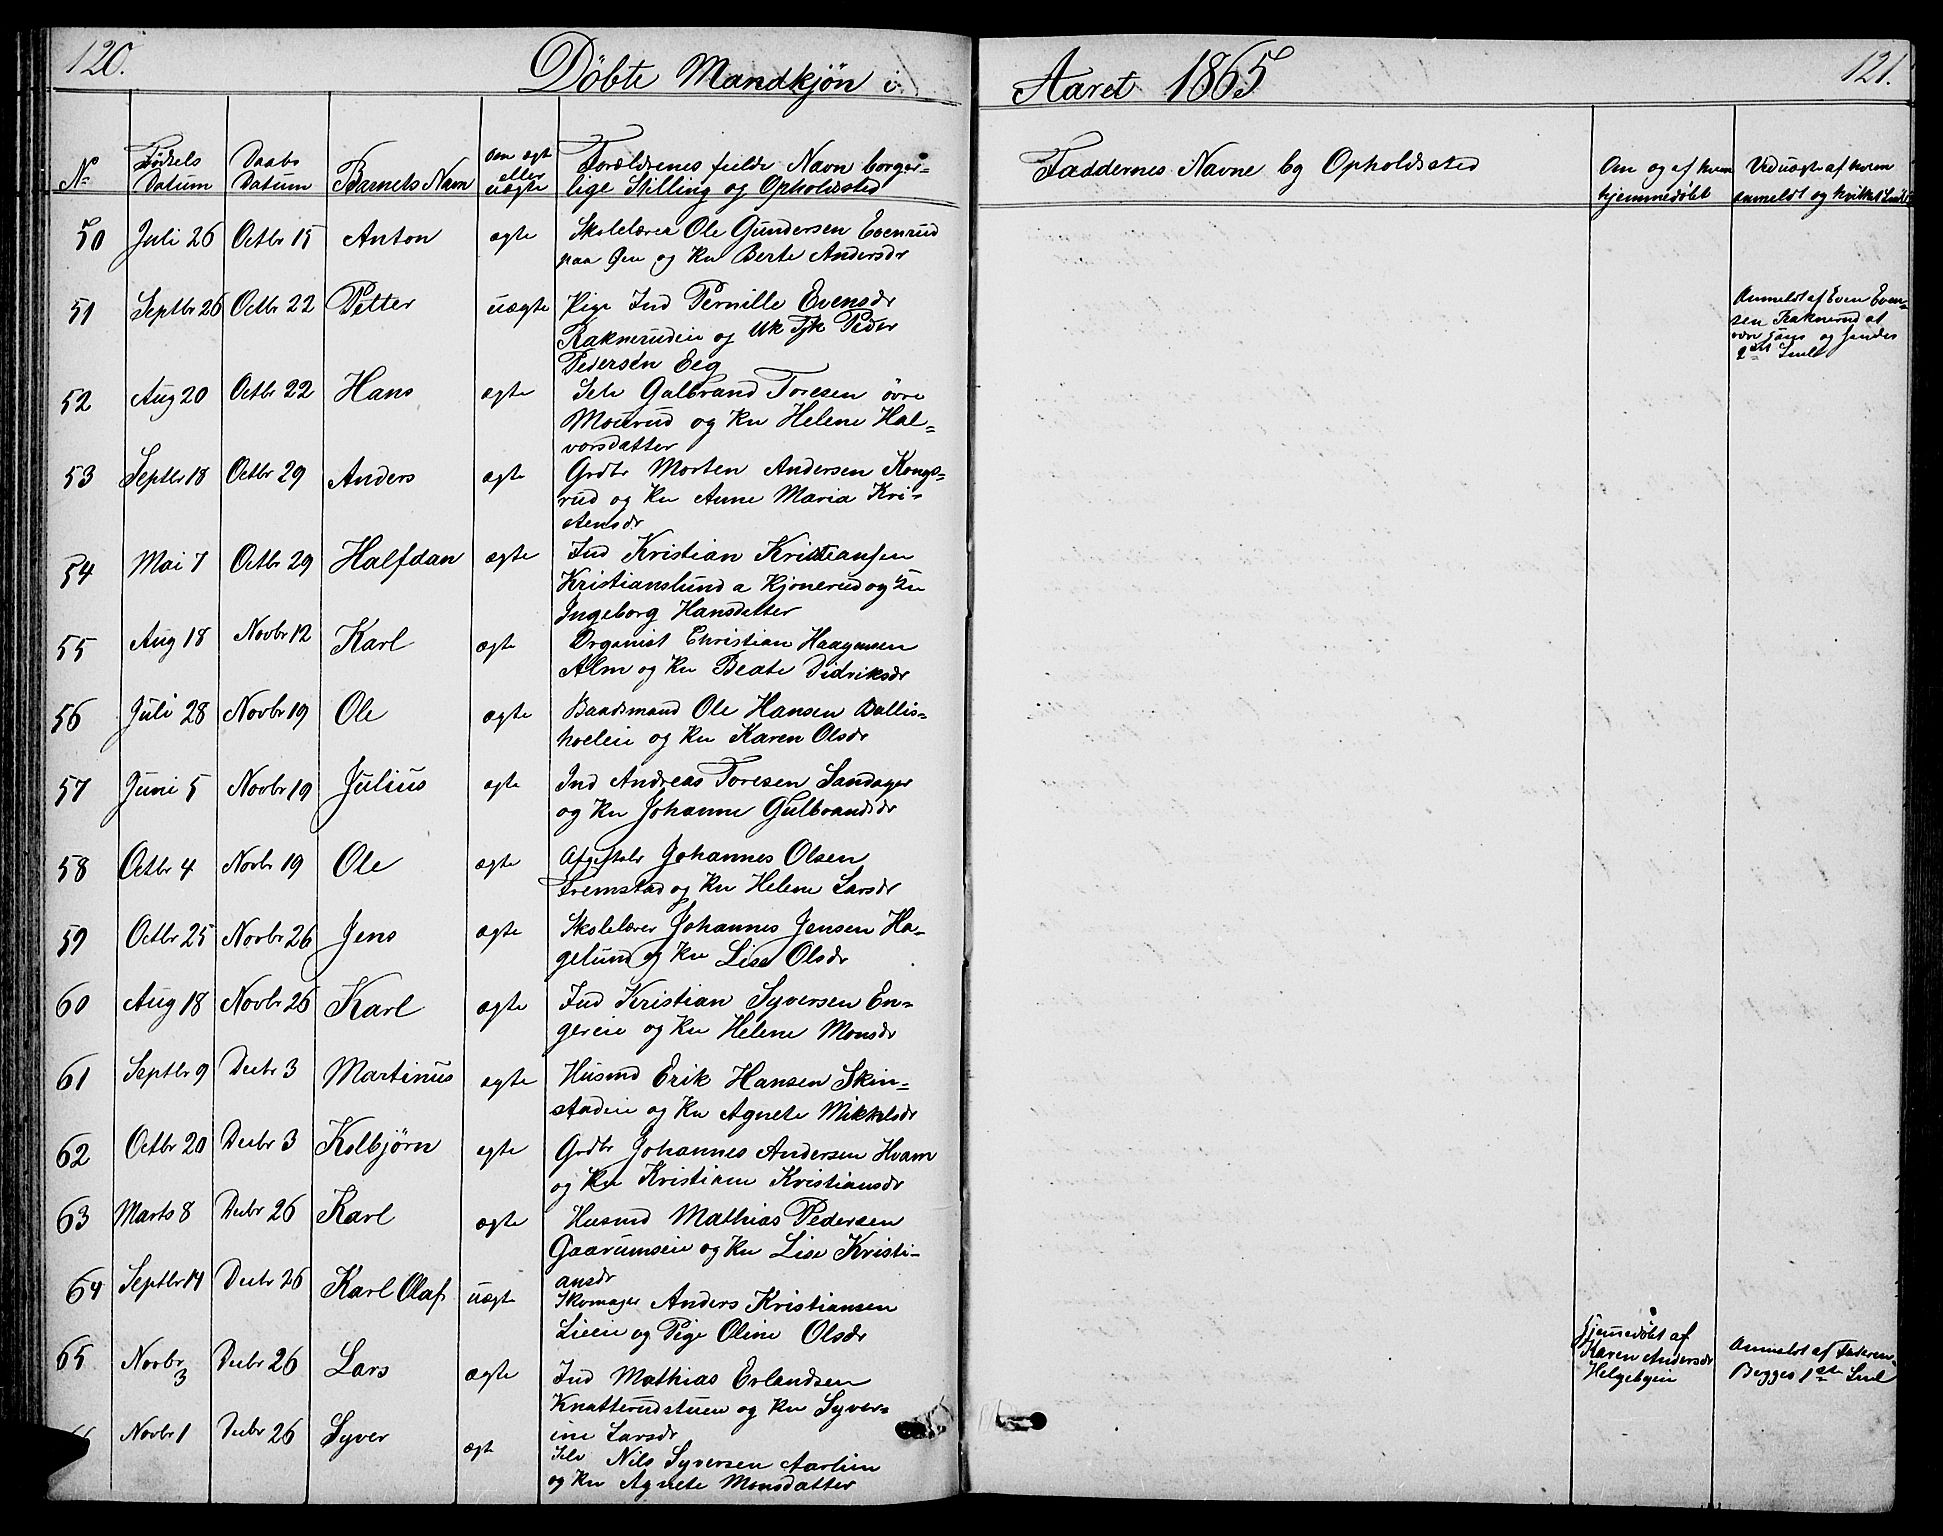 120.
Döbte Mandkjön i
Aaret 1865
121.
No
Födsels Datum
Daabs Datum
Barnets Navn
Om ægte eller uægte
Forældrenes fulde Navn borger-
lige Stilling og Opholdssted
Faddernes Navne og Opholdssted
Om og af hvem
hjemmedöbt
Ved uægte af hvem
anmeldt og hvilket
50 Juli 26 Octbr 15 Anton ægte Skolelærer Ole Gundersen Evenrud
paa Øen og Ku Berte Andersdr
51 Septbr 26 Octbr 22 Petter uægte Pige Ind Pernille Evensdr
Raknerudeie og Uk Peder
Pedersen Eeg
Anmeldt af Even Even-
sen Raknerud at
være hans og hendes
2det
52 Aug 20 Octbr 22 Hans ægte Selv Gulbrand Toresen övre
Mourud og Ku Helene Hal-
vorsdatter
53 Septbr 18 Octbr 29 Anders ægte Grdbr Morten Andersen Kongs-
rud og Ku Anne Maria Kri-
stensdr
54 Mai 7 Octbr 29 Halfdan ægte Ind Kristian Kristiansen
Kristianslund a Kjonerud og Ku
Ingeborg Hansdatter
55 Aug 18 Novbr 12 Karl ægte Organist Christian Haagensen
Alm og Ku Beate Didriksdr
56 Juli 28 Novbr 19 Ole ægte Baadsmand Ole Hansen Ballis-
hoeleie og Ku Karen Olsdr
57 Juni 5 Novbr 19 Julius ægte Ind Andreas Toresen Sandager
og Ku Johanne Gulbrandsdr
58 Octbr 4 Novbr 19 Ole ægte Johannes Olsen
Fremstad og Ku Helene Larsdr
59 Octbr 25 Novbr 26 Jens ægte Skolelærer Johannes Jensen Ha-
gelund og Ku Lise Olsdr
60 Aug 18 Novbr 26 Karl ægte Ind Kristian Syversen En-
gereie og Ku Helene Monsdr
61 Septbr 9 Decbr 3 Martinus ægte Husmd Erik Hansen Skin-
stadeie og Ku Agnete Mikkelsdr
62 Octbr 20 Decbr 3 Kolbjörn ægte Grdbr Johannes Andersen Hvam
og Ku Kristiane Kristiansdr
63 Marts 8 Decbr 26 Karl ægte Husmd Mathias Pedersen
Gaarumseie og Ku Lise Kristi-
ansdr
64 Septbr 14 Decbr 26 Karl Olaf uægte Skomager Anders Kristiansen
Lieeie og Pige Oline Olsdr
hjemmedöbt af
Karen Andersdr
Helgebyeie
Anmeldt af Faderen-
Begges 1ste
65 Novbr 3 Decbr 26 Lars ægte Ind Mathias Erlandsen
Knatterudstuen og Ku Syver-
ine Larsdr
Novbr 1 Decbr 26 Syver ægt Selv Nils Syversen Aarlien
og Ku Agnete Monsdatter